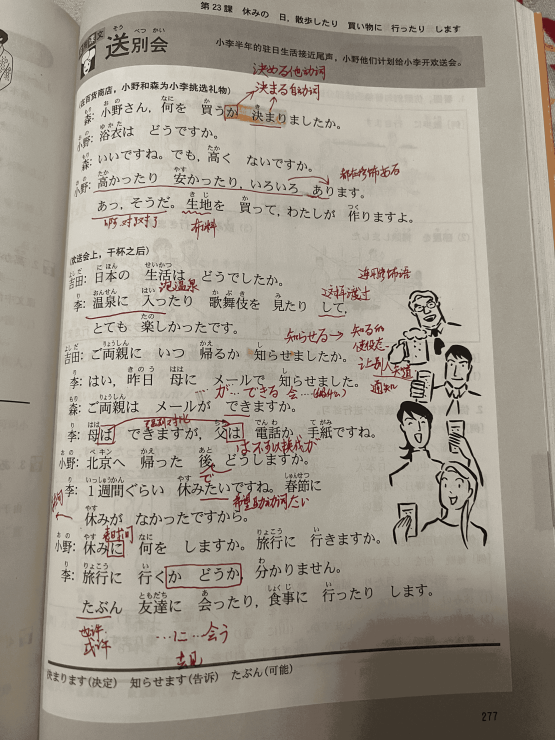 第23課 休みの 日，散歩したり 買い物に 行ったり します
送別会
小李半年的驻日生活接近尾声，小野他们计划给小李开欢送会。
決める他动词
決まる自动词
(在百货商店，小野和森为小李挑选礼物)
森：小野さん，何を 買うか 決まりましたか。
小野：浴衣は どうですか。
森：いいですね。でも，高く ないですか。
小野：高かったり 安かったり，いろいろ あります。
あっ，そうだ。生地を 買って，わたしが 作りますよ。
啊 对对了
布料
(欢送会上，干杯之后)
吉田：日本の 生活は どうでしたか。
泡温泉
李：温泉に 入ったり 歌舞伎を 見たり して，
とても 楽しかったです。
知らせる → 知る的
使役态
让别人知道
通知
吉田：ご両親に いつ 帰るか 知らせましたか。
李：はい，昨日 母に メールで 知らせました。
…が…できる 会
森：ご両親は メールが できますか。
李：母は できますが，父は 電話か 手紙ですね。
は不可以换成が
小野：北京へ 帰った 後，どうしますか。
で
李：1週間ぐらい 休みたいですね。春節に
希望助动词たい
休みが なかったですから。
小野：休みに 何を しますか。旅行に 行きますか。
李：旅行に 行くか どうか 分かりません。
たぶん 友達に 会ったり，食事に 行ったり します。
也许
或许
…に…会う
去见
決まります(决定) 知らせます(告诉) たぶん(可能)
277